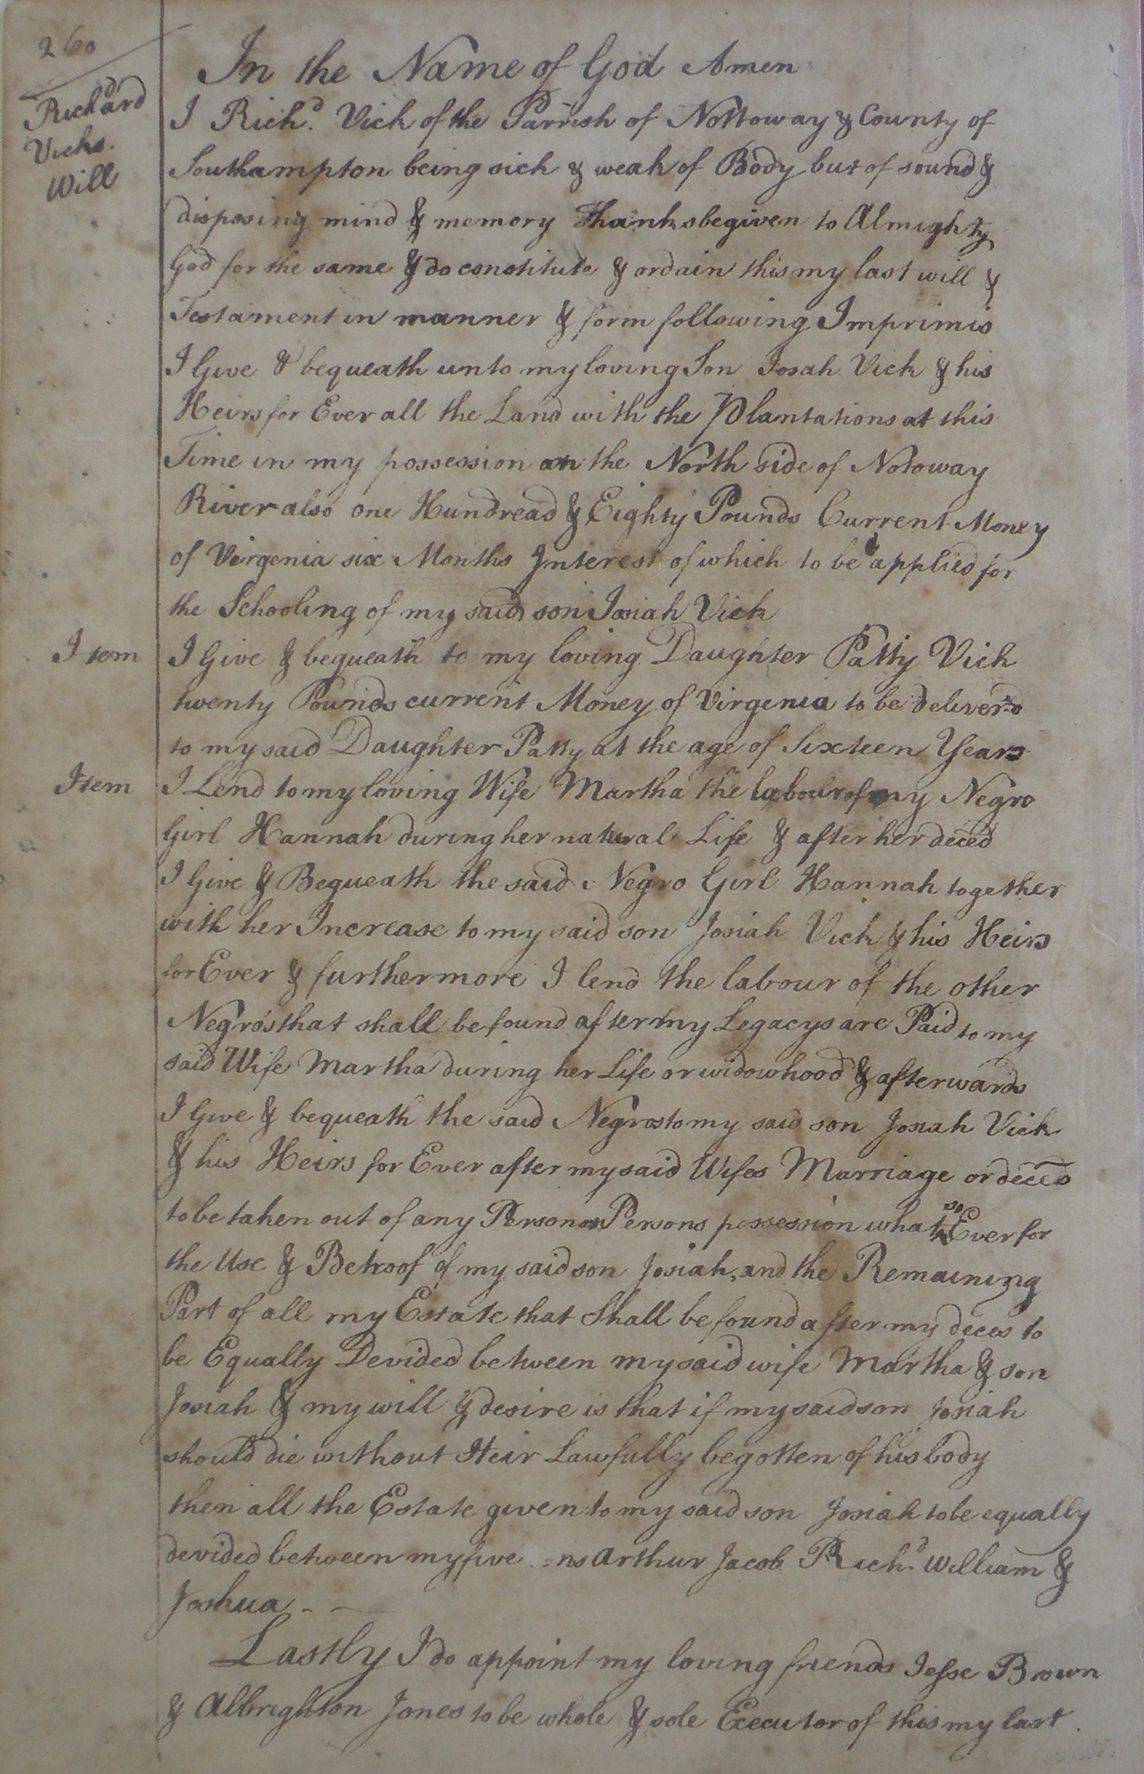 260
Richard
Vicks.
Will
In the Name of God Amen
I Richd. Vick of the Parrish of Nottoway & County of
Southampton being sick & weak of Body but of sound &
disposing mind & memory Thanks be given to Almighty
God for the same & do constitute & ordain this my last will &
Testament in manner & form following Imprimis
I Give & bequeath unto my loving Son Josah Vick & his
Heirs for Ever all the Land with the Plantations at this
Time in my possession on the North side of Notoway
River also one Hundread & Eighty Pounds Current Money
of Virgenia six Months Interest of which to be applied for
the Schooling of my said son Josiah Vick
Item I Give & bequeath to my loving Daughter Patty Vick
twenty Pounds current Money of Virgenia to be deliver'd
to my said Daughter Patty at the age of Sixteen Years
Item I Lend to my loving Wife Martha the labour of my Negro
Girl Hannah during her natural Life & after her deced
I Give & Bequeath the said Negro Girl Hannah together
with her Increase to my said son Josiah Vick & his Heirs
for Ever & furthermore I lend the labour of the other
Negros that shall be found after my Legacys are Paid to my
said Wife Martha during her Life or widowhood & afterwards
I Give & bequeath the said Negros to my said son Josiah Vick
& his Heirs for Ever after my said Wifes Marriage or deces
to be taken out of any Person or Persons possession what so Ever for
the Use & Behoof of my said son Josiah, and the Remaining
Part of all my Estate that Shall be found after my deces to
be Equally Devided between my said wife Martha & son
Josiah & my will & desire is that if my said son Josiah
should die without Heir Lawfully begotten of his body
then all the Estate given to my said son Josiah to be equally
devided between my five ns Arthur Jacob Richd. William &
Joshua - -
Lastly I do appoint my loving friends Jesse Brown
& Albrighton Jones to be whole & sole Executor of this my last